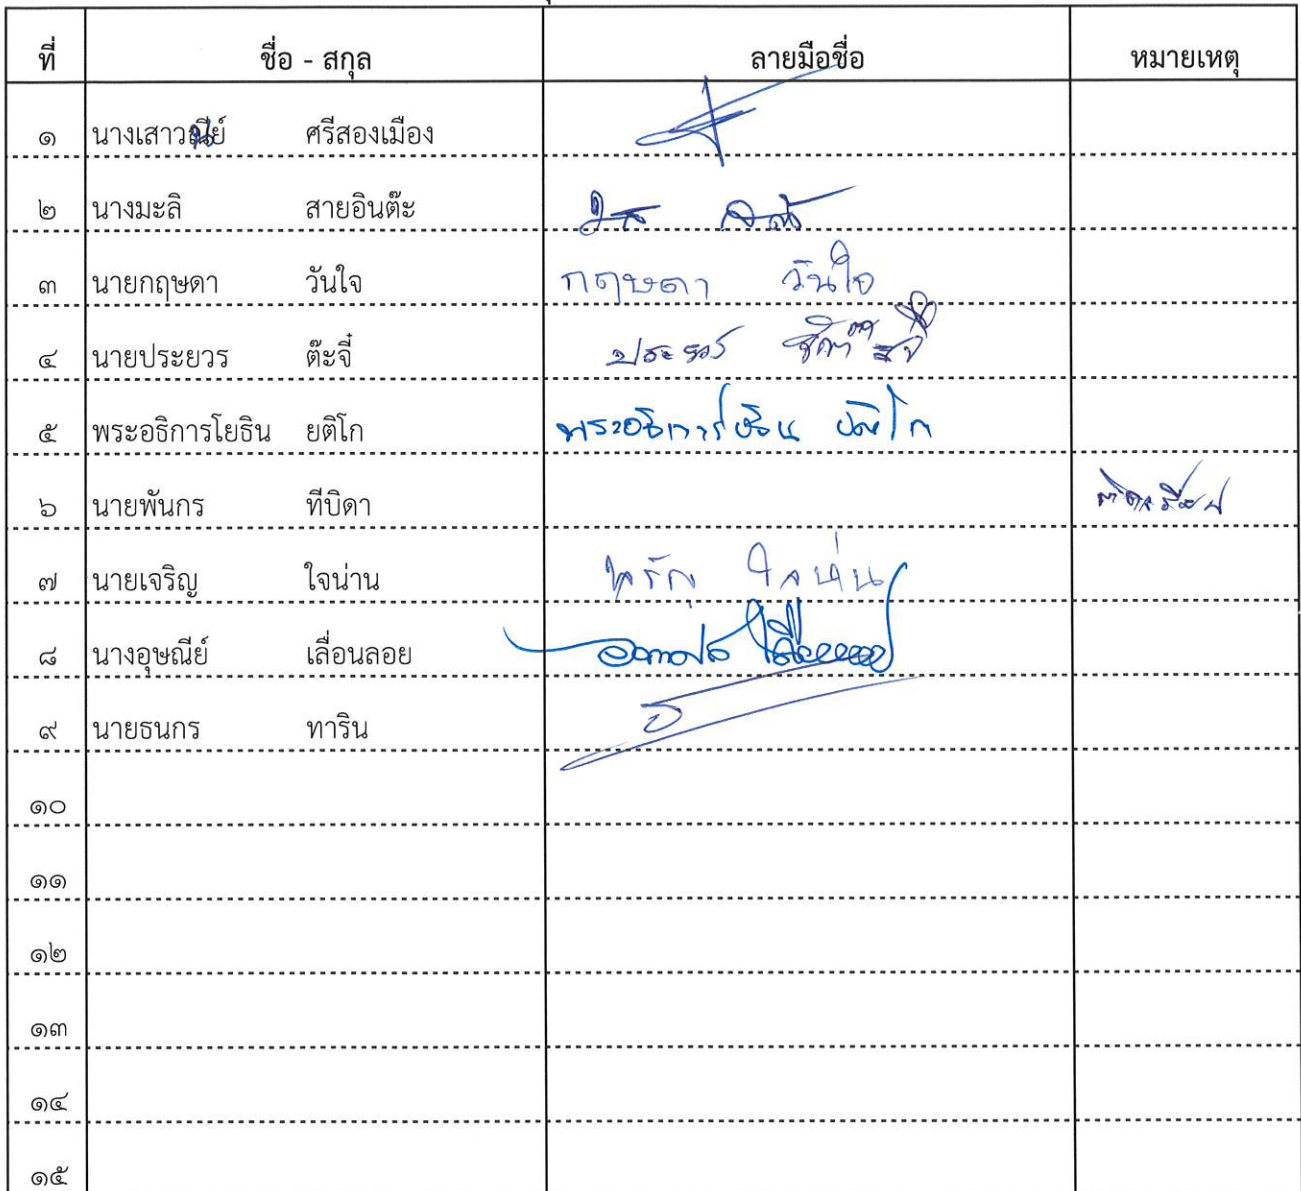 ที่ ชื่อ - สกุล ลายมือชื่อ หมายเหตุ
๑ นางเสาวนีย์ ศรีสองเมือง
๒ นางมะลิ สายอินต๊ะ
๓ นายกฤษดา วันใจ กฤษดา วันใจ
๔ นายประยวร ต๊ะจี๋ ประยวร
๕ พระอธิการโยธิน ยติโก พระอธิการโยธิน ยติโก
๖ นายพันกร ทีบิดา
๗ นายเจริญ ใจน่าน เจริญ ใจน่าน
๘ นางอุษณีย์ เลื่อนลอย
๙ นายธนกร ทาริน
๑๐
๑๑
๑๒
๑๓
๑๔
๑๕